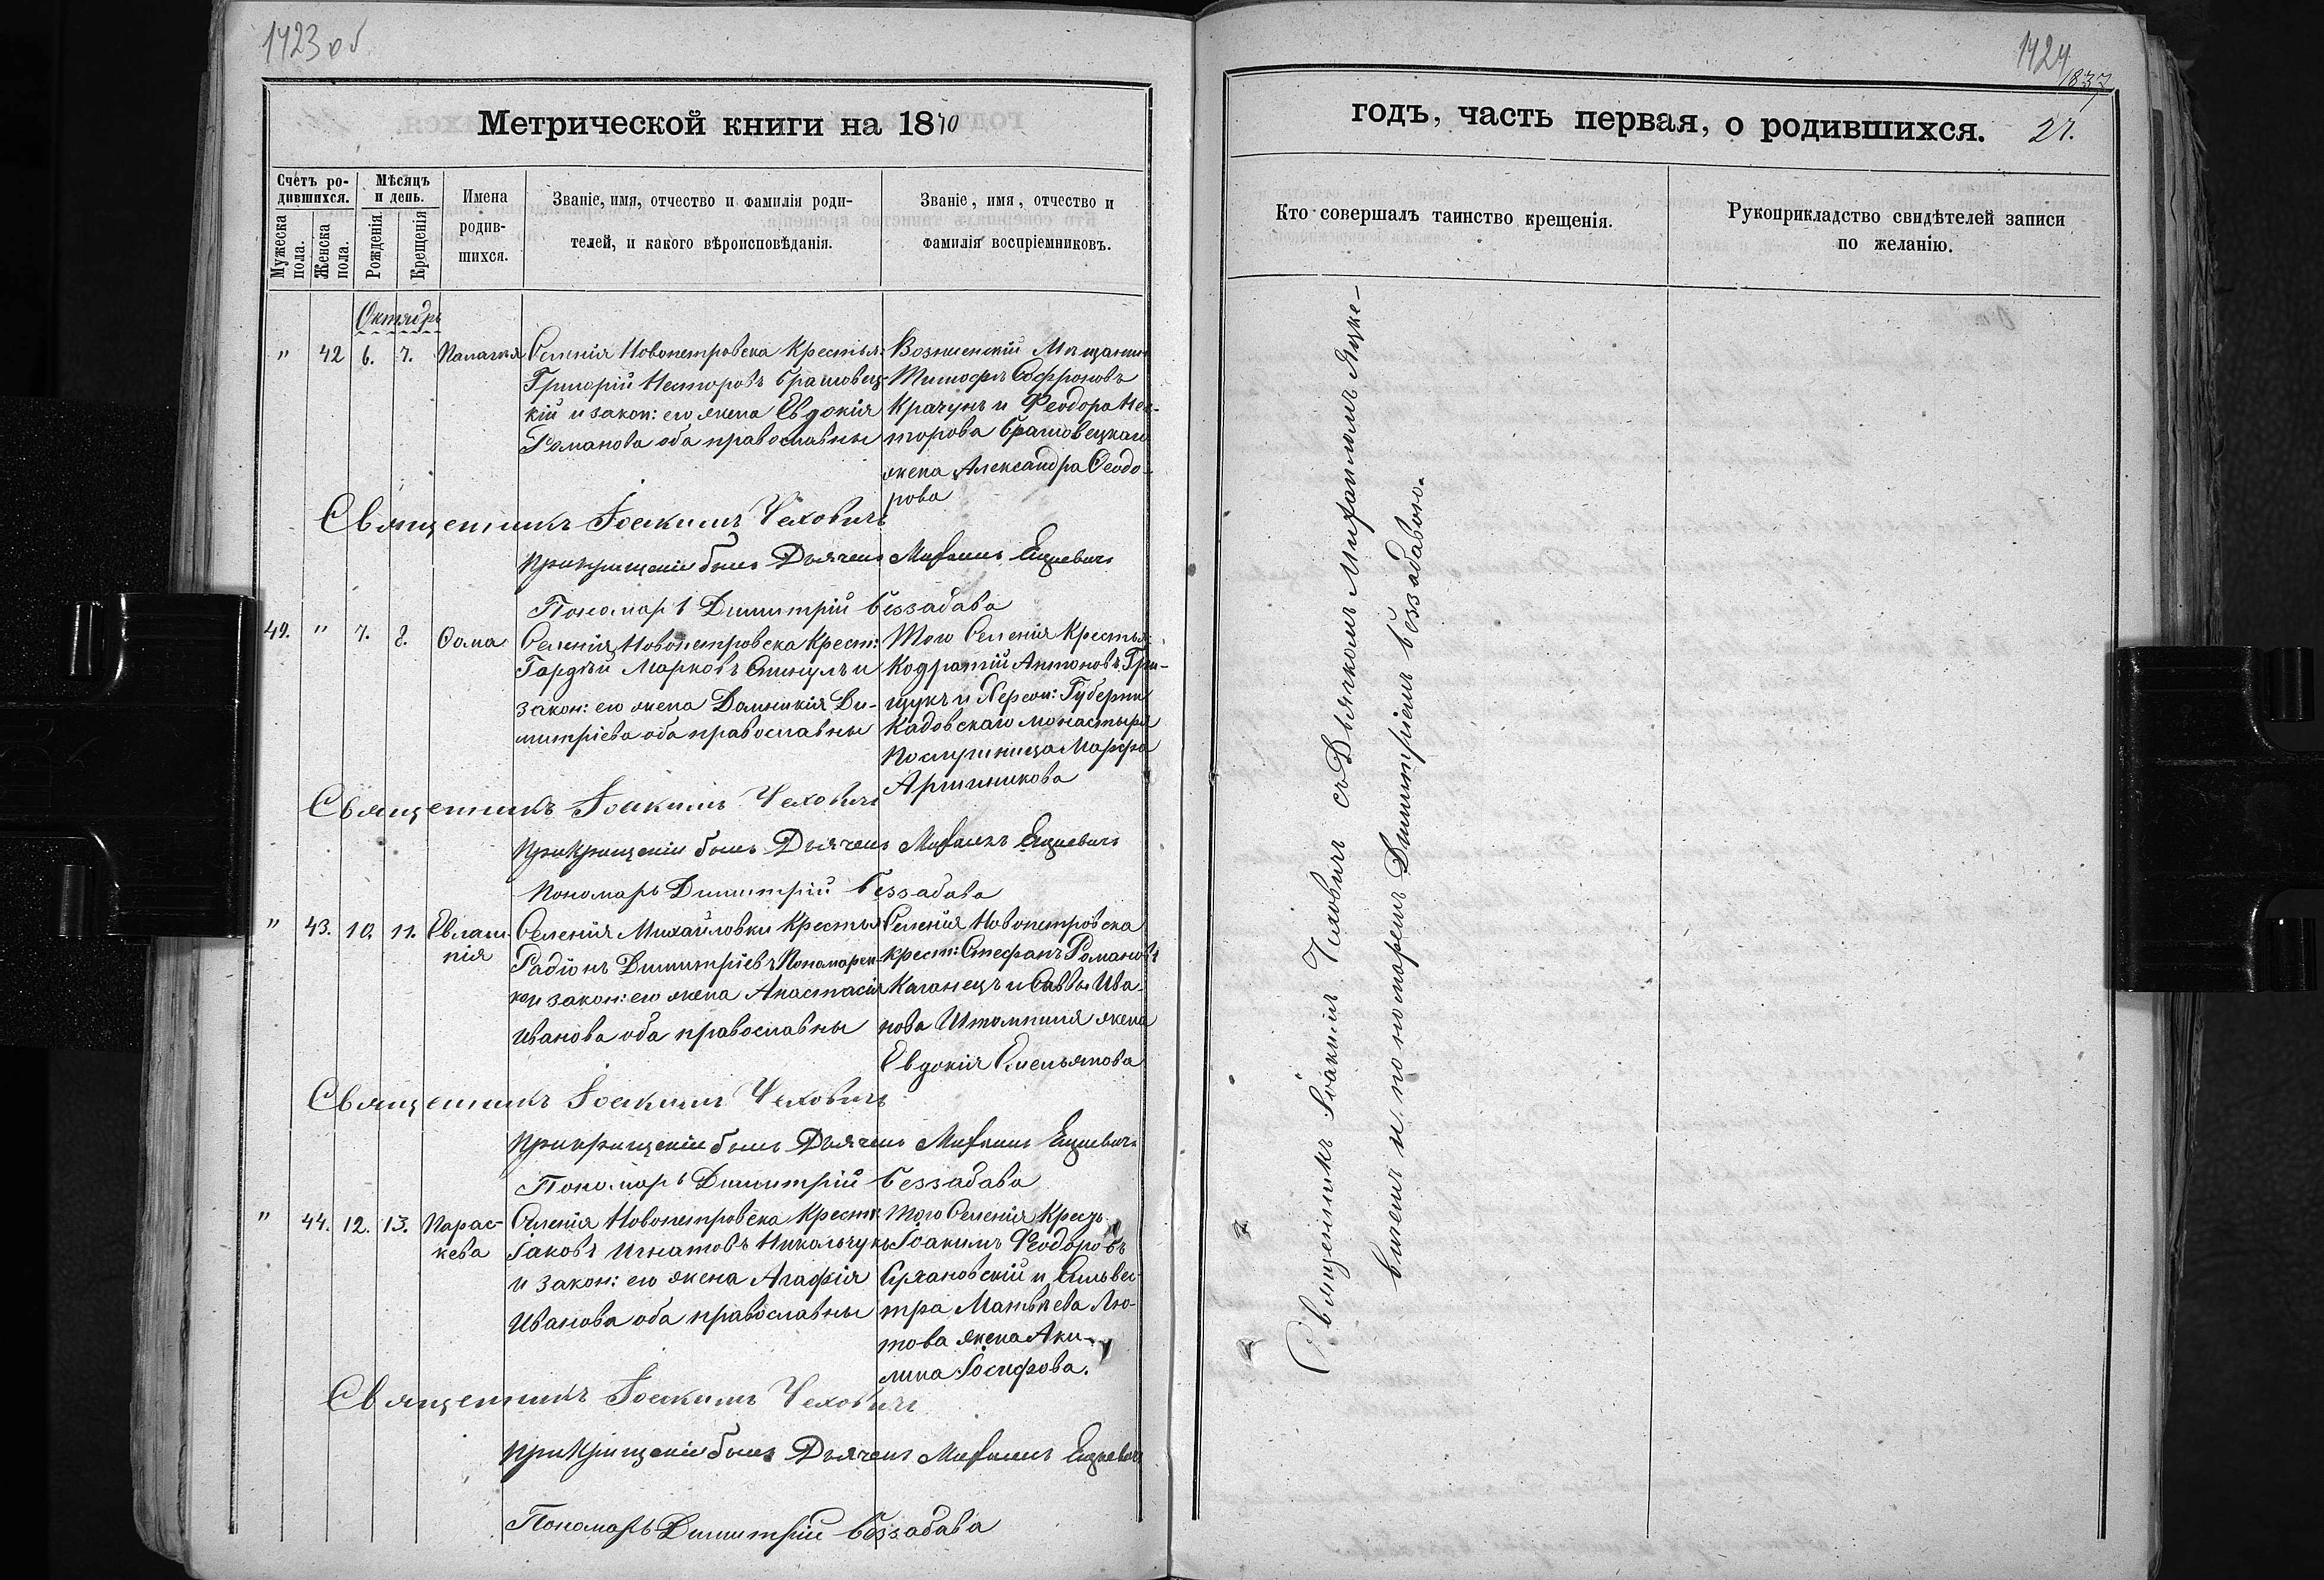 1423 об
Метрической книги на 1870
Счетъ ро-
дившихся.
Мѣсяцъ
и день.
Мужеска
пола.
Женска
пола.
Рожденія.
Крещенія
Имена
родив-
шихся.
Званіе, имя, отчество и фамилія роди-
телей, и какого вѣроисповѣданія.
Званіе, имя, отчество и
фамилія воспріемниковъ.
Октябрь
" 42 6. 7. Палагия
Селенія Новопетровска Крестья:
Григорій Несторовъ Браговец-
кій и закон: его жена Евдокія
Романова оба православны
Вознисенскій Мищанин
Тимофъ Софроновъ
Крачунъ и Феодора Нес-
торова
жена Александра Феодо-
рова
Священникъ Іоакимъ Чеховичъ
При крещеніи былъ Дьячекъ Михаилъ Ецкевичъ
Пономарь Димитрій Беззабава
49. " 7. 8. Фома
Селенія Новопетровска Крест:
Гордѣй Марковъ и
закон: его жена Домникія Ди-
митріева оба православны
Того Селенія Крестья:
Кодратій Антоновъ Гри-
цукъ и Херсон: Губерни
монастыря
Послушница Марфа
Священникъ Іоакимъ Чеховичъ
При крещеніи былъ Дьячекъ Михаилъ Ецкевичъ
Пономарь Димитрій Беззабава
" 43. 10. 11. Евлам-
пія
Селенія Михайловки Крестья
Радіонъ Димитріевъ Пономарен-
ко и закон: его жена Анастасія
Иванова оба православны
Селенія Новопетровска
крест: Стефанъ Романовъ
Каганецъ и Саввы Ива-
нова жена
Евдокія Емельянова
Священникъ Іоакимъ Чеховичъ
При крещеніи былъ Дьячекъ Михаилъ Ецкевичъ
Пономарь Димитрій Беззабава
" 44. 12. 13. Парас-
кева
Селенія Новопетровска Крестья
Іаковъ Игнатовъ Никольчукъ
и закон: его жена Агафія
Иванова оба православны
Того Селенія Кресть
Іоакимъ Феодоровъ
и Сильвес-
тра Матвѣева Лю-
това жена Аки-
лина Іосифова.
Священникъ Іоакимъ Чеховичъ
При крещеніи былъ Дьячекъ Михаилъ Ецкевичъ
Пономарь Димитрій Беззабава
1424
1837
годъ, часть первая, о родившихся. 27.
Кто совершалъ таинство крещенія.
Рукоприкладство свидѣтелей записи
по желанію.
Священникъ Іоакимъ Чеховичъ съ Дьячкомъ Михаиломъ Яцке-
вичемъ и пономаремъ Димитріемъ Беззабавою.